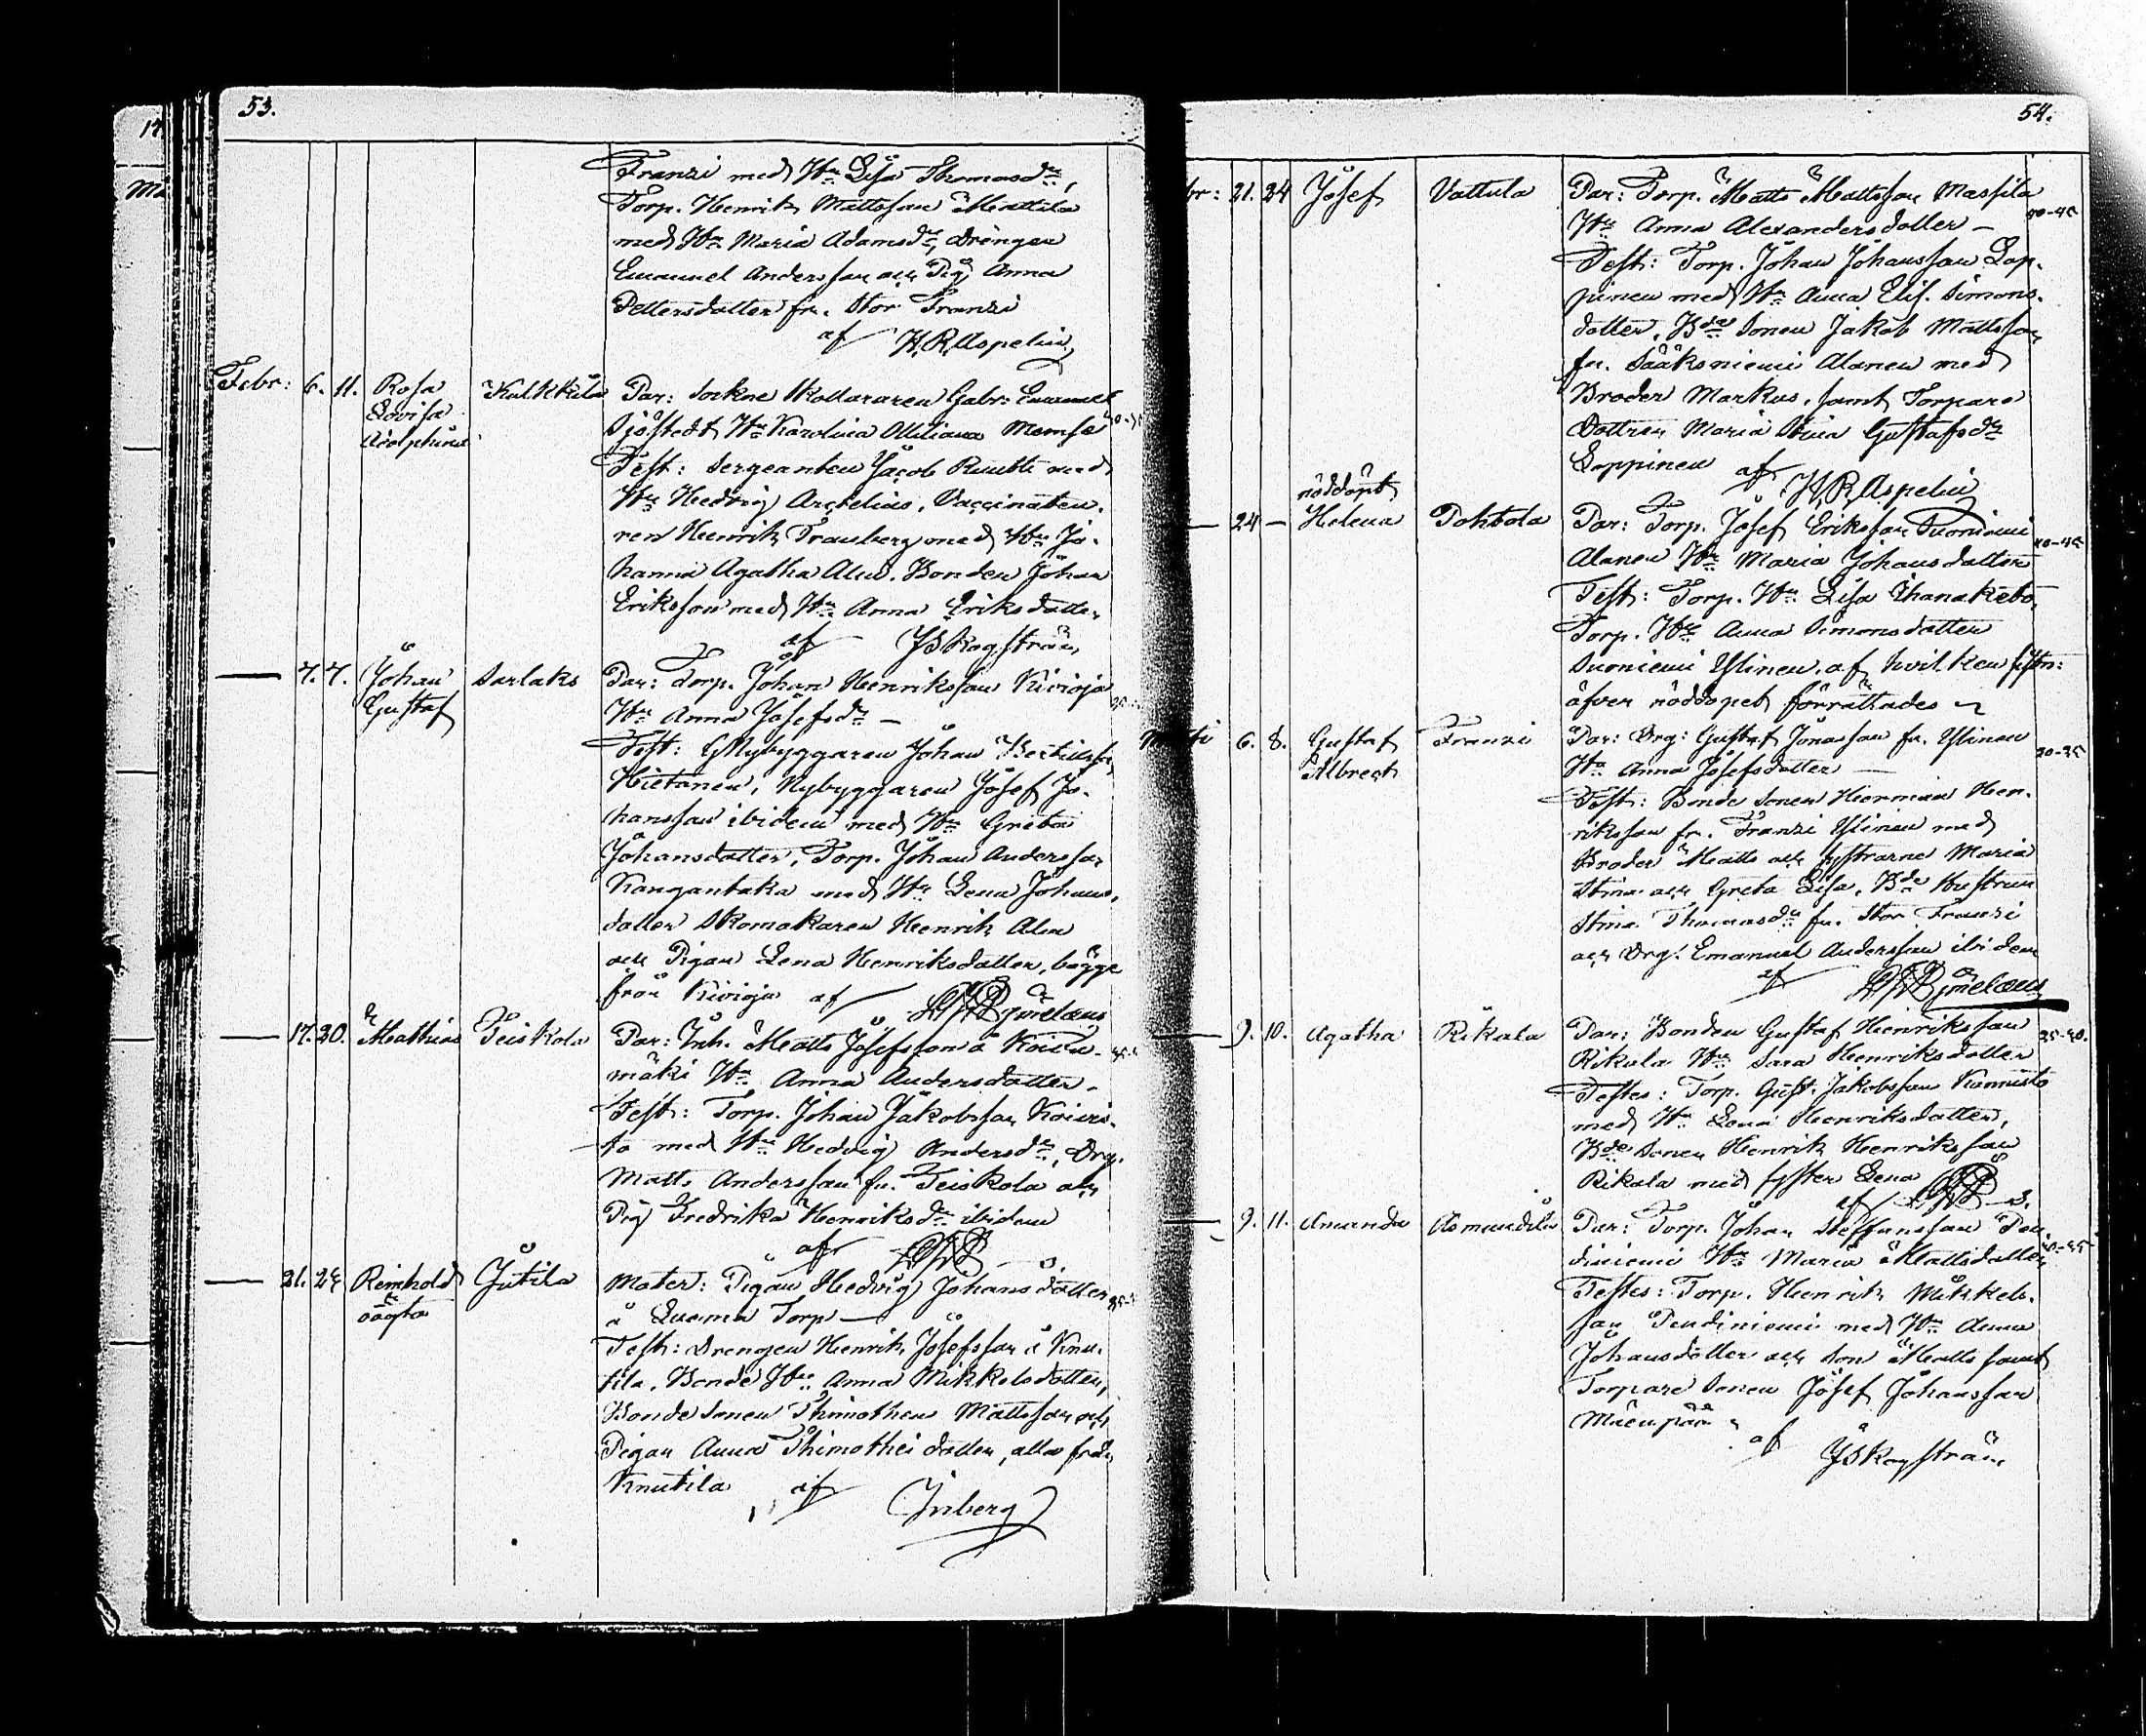 53.
Franzi med H:u Lisa Thomasd:r,
Torp. Henrik Mattsson Mattila
med H:u Maria Adamsd:r, Drängen
Emanuel Andersson och Pig. Anna
Pettersdotter fr. Stor Franzi
af H. R. Aspelin
Febr: 6. 11. Rosa Kulkkila Par: Sockne Skolläraren Gabr: Emanuel
Lovisa Sjöstedt H:u Karolina
Adolphina Test: Sergeanten Jacob med
H:u Hedvig Arcelius, Vaccinateu-
ren Henrik Tranberg med H:u Jo-
hanna Agatha Alin. Bonden Johan
Eriksson med H:u Anna Eriksdotter
af
— 7. 7. Johan Sarlaks Par: Torp. Johan Henriksson Kivioja
Gustaf H:u Anna Josefsd:r —
Test: Nybyggaren Johan
Hietanen, Nybyggaren Josef Jo-
hansson ibidem med H:u Greta
Johansdotter, Torp. Johan Andersson
Kangantaka med H:u Lena Johans-
dotter Skomakaren Henrik Alin
och Pigan Lena Henriksdotter, bägge
från Kivioja af
— 17. 20. Matthias Teiskola Par: Inh. Matts Josefsson å Koivu-
mäki H:u Anna Andersdotter -
Test: Torp. Johan Jakobsson Koivis-
to med H:u Hedvig Andersd:r, Drg.
Matts Andersson fr. Teiskola och
Pig. Fredrika Henriksd:r ibidem
af
— 21. 24 Reinhold Jutila Mater: Pigan Hedvig Johansdotter
oägta å Luoma Torp —
Test: Drengen Henrik Josefsson å Knu-
tila, Bonde H:u Anna Mikkelsdotter,
Bonde Sonen Thimotheus Mattsson och
Pigan Anna Thimothei dotter, alla från
Knutila af Inberg
54.
br: 21. 24 Josef Vattula Par: Torp. Matts Mattsson Massila
40-45
H:u Anna Alexandersdotter —
Test: Torp. Johan Johansson Lop-
pinen med H:u Anna Elis. Simons-
dotter, B:de Sonen Jakob Mattsson
fr. Sääksniemi Alanen med
Broder Markus, samt Torpare
Dottren Maria Stina Gustafsd:r
Loppinen af H. R. Aspelin
nöddöpt
— 24 — Helena Pohtola Par: Torp. Josef Eriksson Suoniemi
40-45
Alanen H:u Maria Johansdotter
Test: Torp. H:u Lisa
Torp. H:u Anna Simonsdotter
Suoniemi Ylinen, af hvilken
äfven nöddopet förrättades
6. 8. Gustaf Franzi Par: Drg: Gustaf Jonasson fr. Ylinen
30-35
Albrecht H:u Anna Josefsdotter —
Test: Bonde Sonen Herman Hen-
riksson fr. Franzi Ylinen med
Broder Matts och systrarne Maria
Stina och Greta Lisa, B:de Hustrun
Stina Thomasd:r fr. Stor Franzi
och Drg. Emanuel Andersson ibidem
af
— 9. 10. Agatha Rikala Par: Bonden Gustaf Henriksson
35-40.
Rikala H:u Sara Henriksdotter
Testes: Torp. Gust. Jakobsson Kumisto
med H:u Lena Henriksdotter,
B:de Sonen Henrik Henriksson
Rikala med syster Lena
af
— 9. 11. Amanda Asmundila Par: Torp. Johan Steffansson Pen-
diniemi H:u Maria Mattsdotter
Testes: Torp. Henrik Mikkels-
son Pendiniemi med H:u Anna
Johansdotter och Son Matts samt
Torpare Sonen Josef Johansson
Mäenpää
af